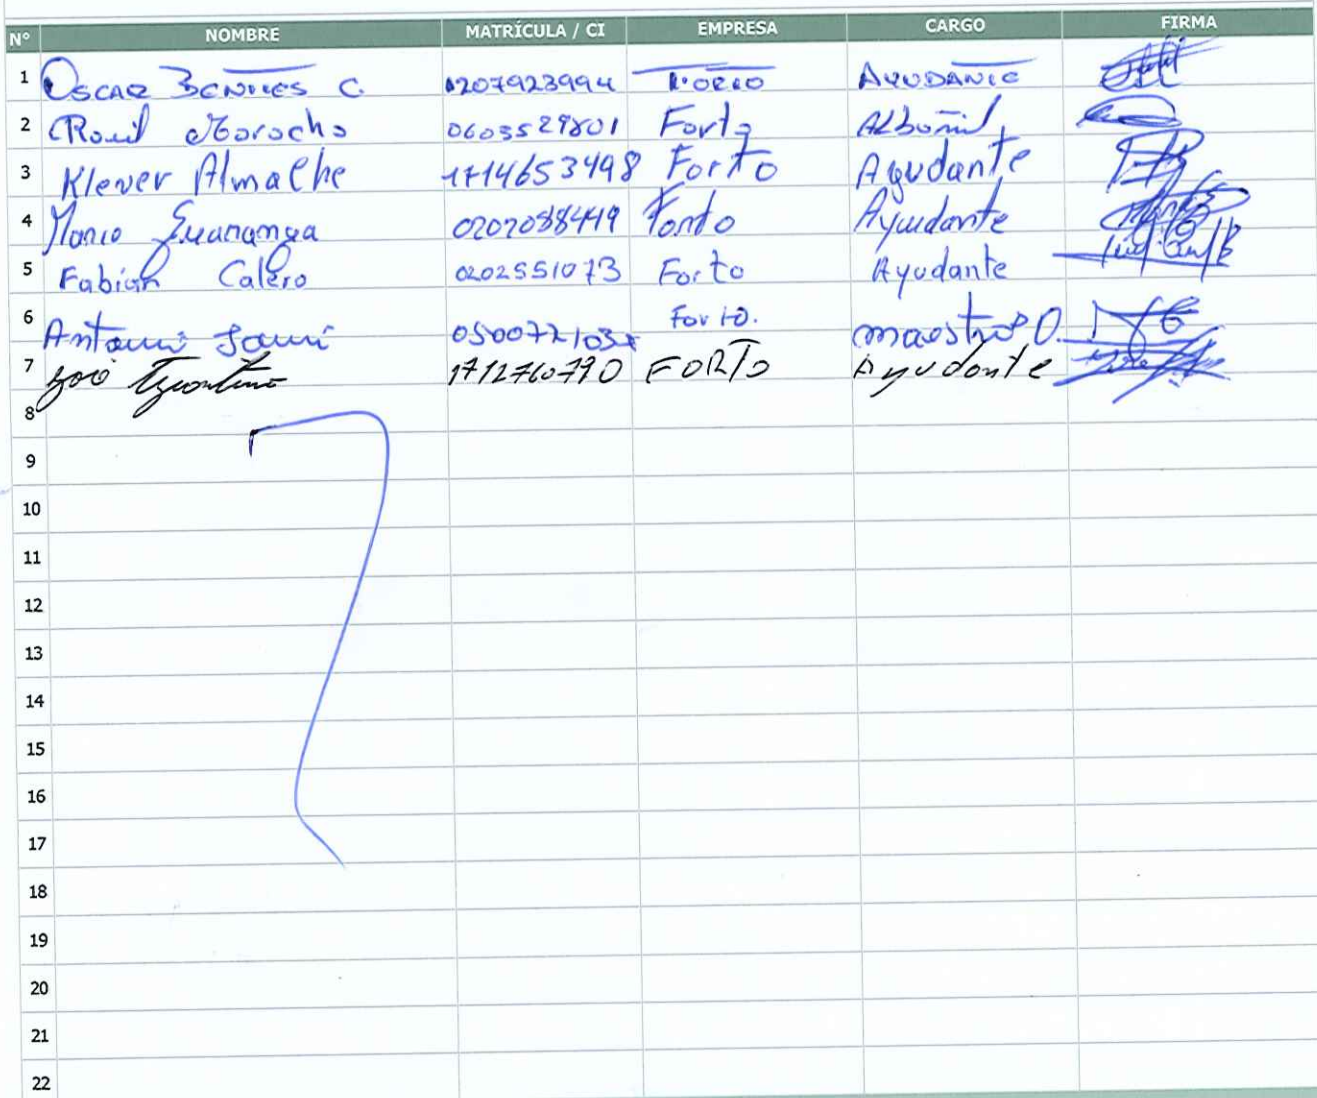 N° NOMBRE MATRÍCULA / CI EMPRESA CARGO FIRMA
1 OSCAR BENITES C. 1207923994 FORTO AYUDANTE
2 Raul Morocho 0603529801 Forto Albañil
3 Klever Almache 1714653498 Forto Ayudante
4 Mario Guananga 0202088419 Forto Ayudante
5 Fabian Calero 0202551073 Forto Ayudante
6 Forto. maestro O.
7 1712760790 FORTO Ayudante
8
9
10
11
12
13
14
15
16
17
18
19
20
21
22